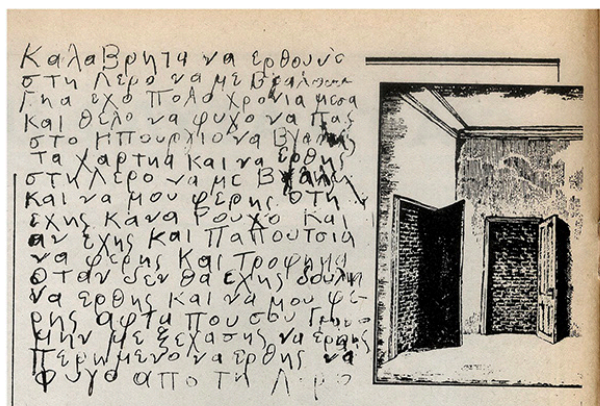 Καλαβρητα να ερθουνε
στη Λερο να με βγαλουνε
Γηα εχο Πολα χρονια μεσα
Και θελο να φυγο να πας
στο Ηπουργιο να Βγαλης
τα χαρτηα και να ερθης
στη Λερο να με Βγαλης
και να μου φερης οτη
εχης κανα Ρουχο και
αν εχης και Παπουτσια
να φερης και τροφημα
οταν δεν θα εχης δουλη
να ερθης και να μου φε-
ρης αφτα που σου Γραφο
μην με ξεχασης να ερθης
Περημενο να ερθης να
φυγο απο τη Λερο